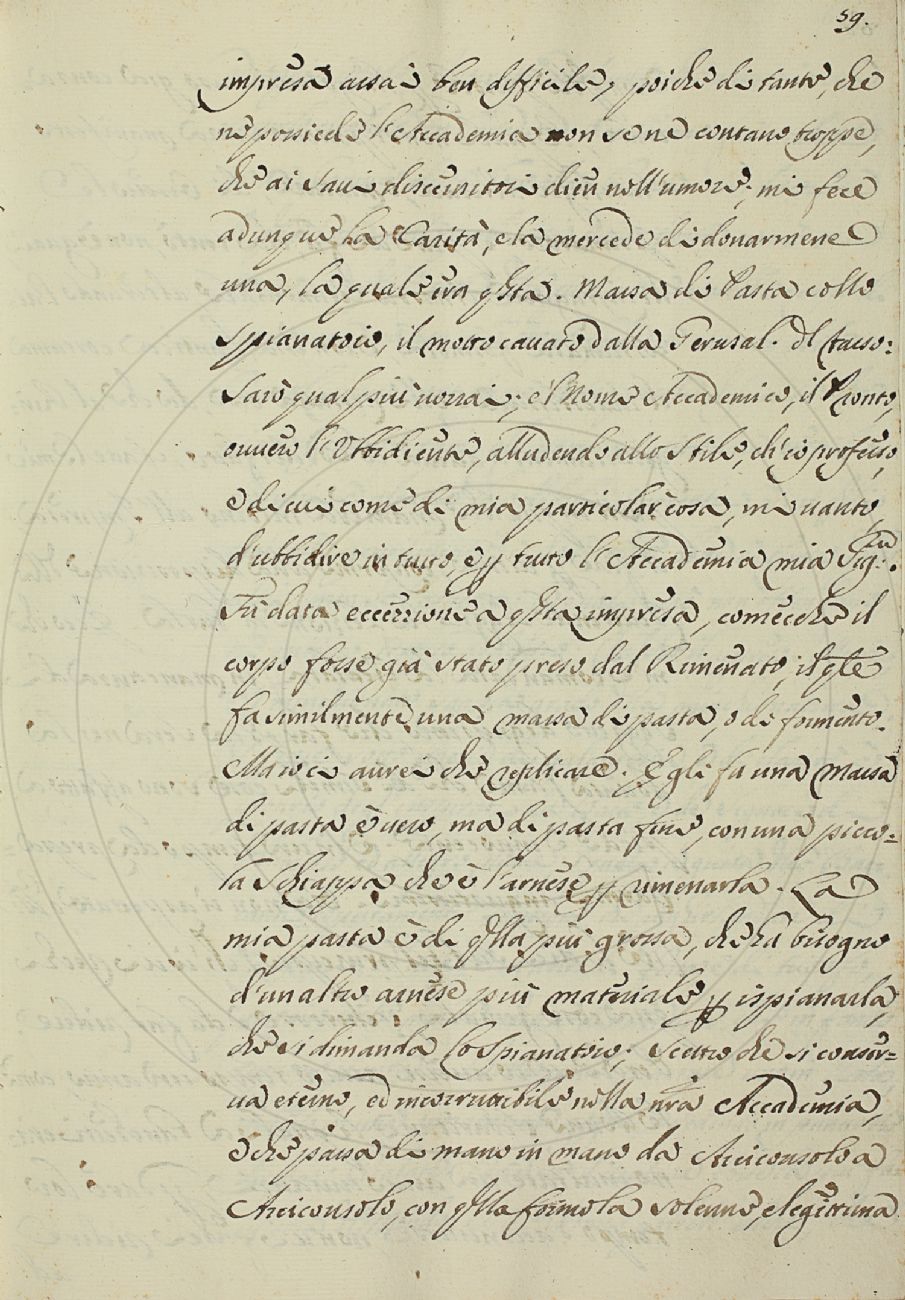 59.
impresa assai ben difficile, poiche di tante, che
ne possiede l'Accademia non se ne contano troppe,
che ai Savi dien nell'umore; mi fece
adunque la Carità, e la mercede di donarmene
una, la quale era qsta. Massa di Pasta collo
Spianatoio, il motto cavato dalla Gerusal. dl tasso:
Sarò qual più vorrai; e'l Nome Accademico, il Pronto,
ovvero l'Ubbidiente, alludendo allo Stile, ch'io professo,
e di cui come di mia particolar cosa, mi vanto,
d'ubbidire in tutto, e p tutto l'Accademia mia Sig.ra.
Fù data eccezzione a qsta impresa, comecche il
corpo fosse già stato preso dal Rimenato, il qle
fa similmente una massa di pasta, o di formento.
Ma io ci aurei che replicare. Egli fa una massa
di pasta è vero, ma di pasta fine, con una picco=
la Schiappa che è l'arnese p rimenarla. La
mia pasta è di qlla più grossa, che hà bisogno
d'un altro arnese più materiale p ispianarla,
che si dimanda lo Spianatoio; Scettro che si conser=
va eterno, ed incorruttibile nella nrã Accademia,
e che passa di mano in mano da Arciconsolo a
Arciconsolo, con qlla formola solenne, e legittima